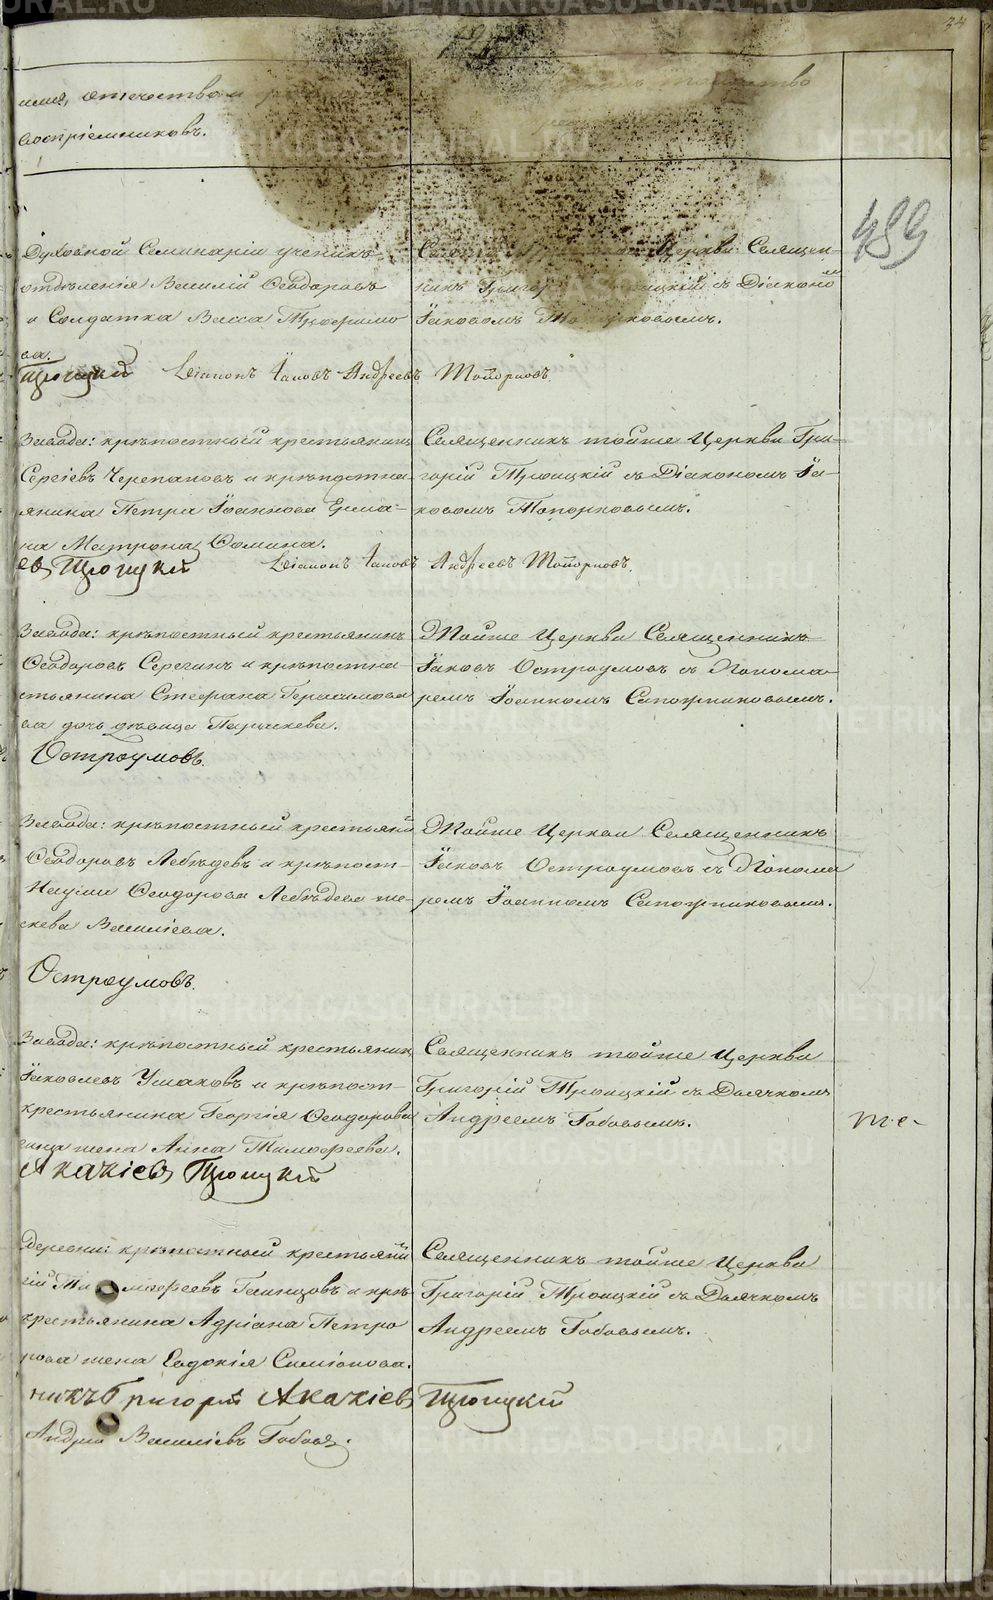 34
имя, отечество и
воспріемниковъ.
489
Духовной Семинаріи ученикъ
отдѣленія Василій Ѳеодоровъ
и Солдатка Васса Трофимо
ва.
Церкви Священ-
никъ Григор Троицкій съ Діакономъ
Іаковомъ Топорковымъ.
Троицкій Діаконъ Іаковъ Андреевъ Топорковъ.
Завода: крѣпостный крестьянинъ
Сергіевъ Черепановъ и крѣпостна-
янина Петра Іоаннова Ерма-
на Матрона Ѳомина.
Священникъ тойже Церкви Гри-
горій Троицкій съ Діакономъ Іа-
ковомъ Топорковымъ.
евъ Троицкій Діаконъ Іаковъ Андреевъ Топорковъ.
Завода: крѣпостный крестьянинъ
Ѳеодоровъ Серегинъ и крѣпостна
стьянина Стефана Герасимова
ва дочь дѣвица Параскева.
Тойже Церкви Священникъ
Іаковъ Остроумовъ съ Понома-
ремъ Іоанномъ Сапожниковымъ.
Остроумовъ.
Завода: крѣпостный крестьяни
Ѳеодоровъ Лебѣдевъ и крѣпост-
Наума Ѳеодорова Лебѣдева же-
скева Василіева.
Тойже Церкви Священникъ
Іаковъ Остроумовъ съ Понома
ремъ Іоанномъ Сапожниковымъ.
Остроумовъ.
Завода: крѣпостный крестьянинъ
Іаковлевъ Ушаковъ и крѣпост-
крестьянина Георгія Ѳеодорова
сина жена Анна Тимофеева.
Священникъ тойже Церкви
Григорій Троицкій съ Дьячкомъ
Андреемъ Бабовымъ.
т.е.
Акакіевъ Троицкій
Деревни: крѣпостный крестьяни
гій Тимофеевъ Галицовъ и крѣ-
крестьянина Адріана Петро
рова жена Евдокія Симіонова.
Священникъ тойже Церкви
Григорій Троицкій съ Дьячкомъ
Андреемъ Бабовымъ.
никъ Григорій Акакіевъ Троицкій
Андрей Василіевъ Бабовъ.
METRIKI.GASO-URAL.RU